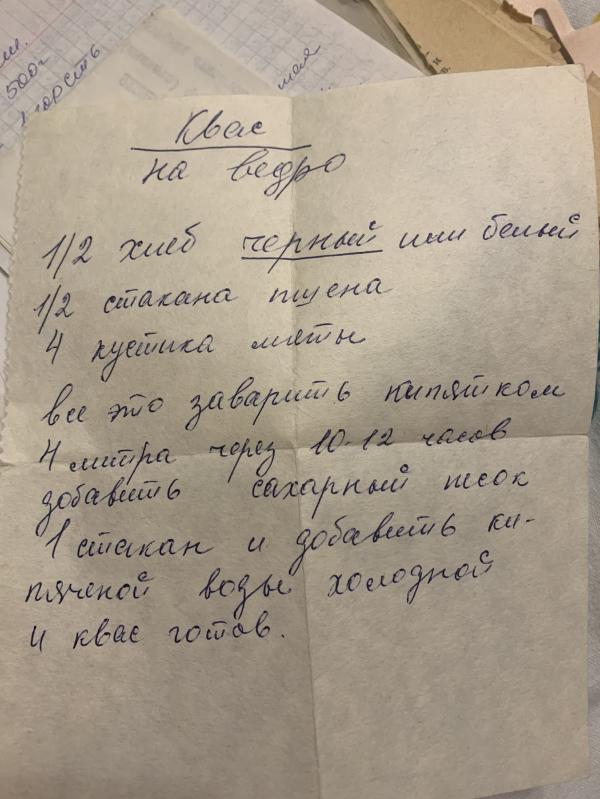 500г
горсть
Квас
на ведро
1/2 хлеб черный или белый
1/2 стакана пшена
4 кустика мяты
все это заварить кипятком
4 литра через 10-12 часов
добавить сахарный песок
1 стакан и добавить ки-
пяченой воды холодной
и квас готов.